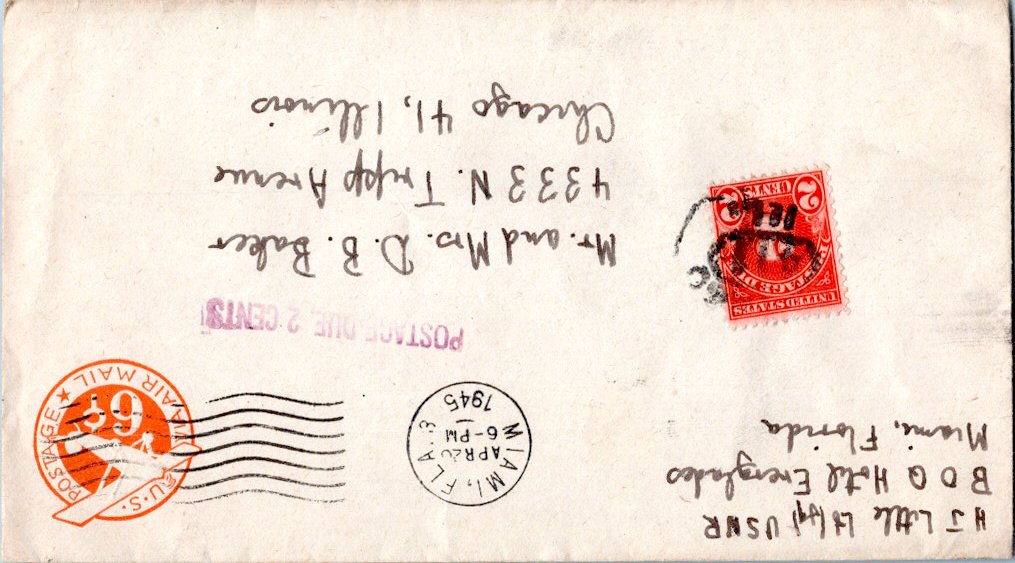 H J Little Lt(jg) USNR
B O Q Hotel Everglades
Miami, Florida
MIAMI, FLA. 3
APR 26
6-PM
1945
U.S. POSTAGE
VIA AIR MAIL
6¢
POSTAGE DUE 2 CENTS
Mr. and Mrs. D. B. Baker
4333 N. Tripp Avenue
Chicago 41, Illinois
UNITED STATES
POSTAGE DUE
2 CENTS 2